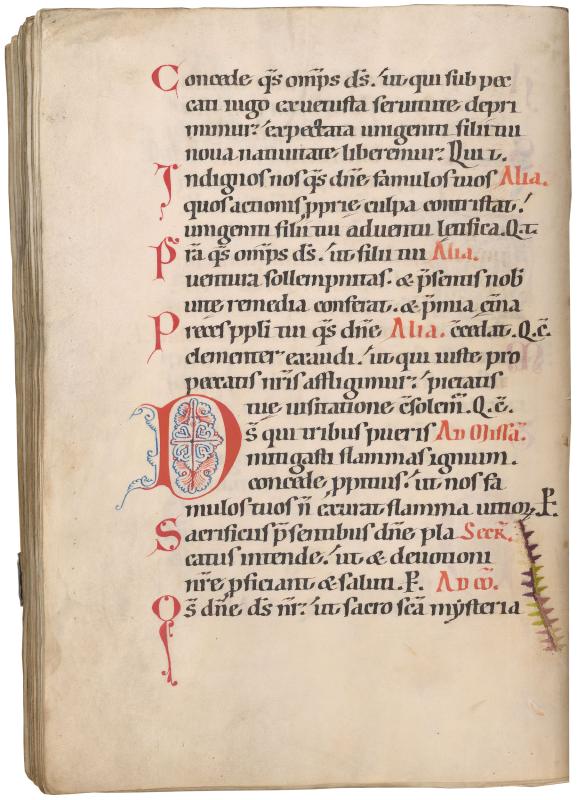 Concede q̄s om̄ps d̄s. ut qui sub pec
cati iugo ex uetusta seruitute depri
mimur. expectata unigeniti filii tui
noua natiuitate liberemur. Qui t.
Indignos nos q̄s dn̄e famulos tuos Alia.
quos actionis pprie culpa contristat.
unigeniti filii tui aduentu letifica. Q. t.
Pr̄a q̄s om̄ps d̄s. ut filii tui Alia.
uentura sollempnitas. & p̄sentis nob̄
uite remedia conferat. & p̄mia et̄na
Preces ppli tui q̄s dn̄e Alia. c̄cedat. Q. c̄.
clementer exaudi. ut qui iuste pro
peccatis nr̄is affligimur. pietatis
tue uisitatione c̄solem̄. Q. c̄.
Ds̄ qui tribus pueris Ad Missā.
mitigasti flammas ignium.
concede ppitius. ut nos fa
mulos tuos n̄ exurat flamma uitioꝝ. P.
Sacrificiis p̄sentibus dn̄e pla Secr̄.
catus intende. ut & deuotioni
nr̄e pficiant & saluti. P. Ad c̄o.
Qs̄ dn̄e ds̄ nr̄. ut sacro sc̄a mẏsteria